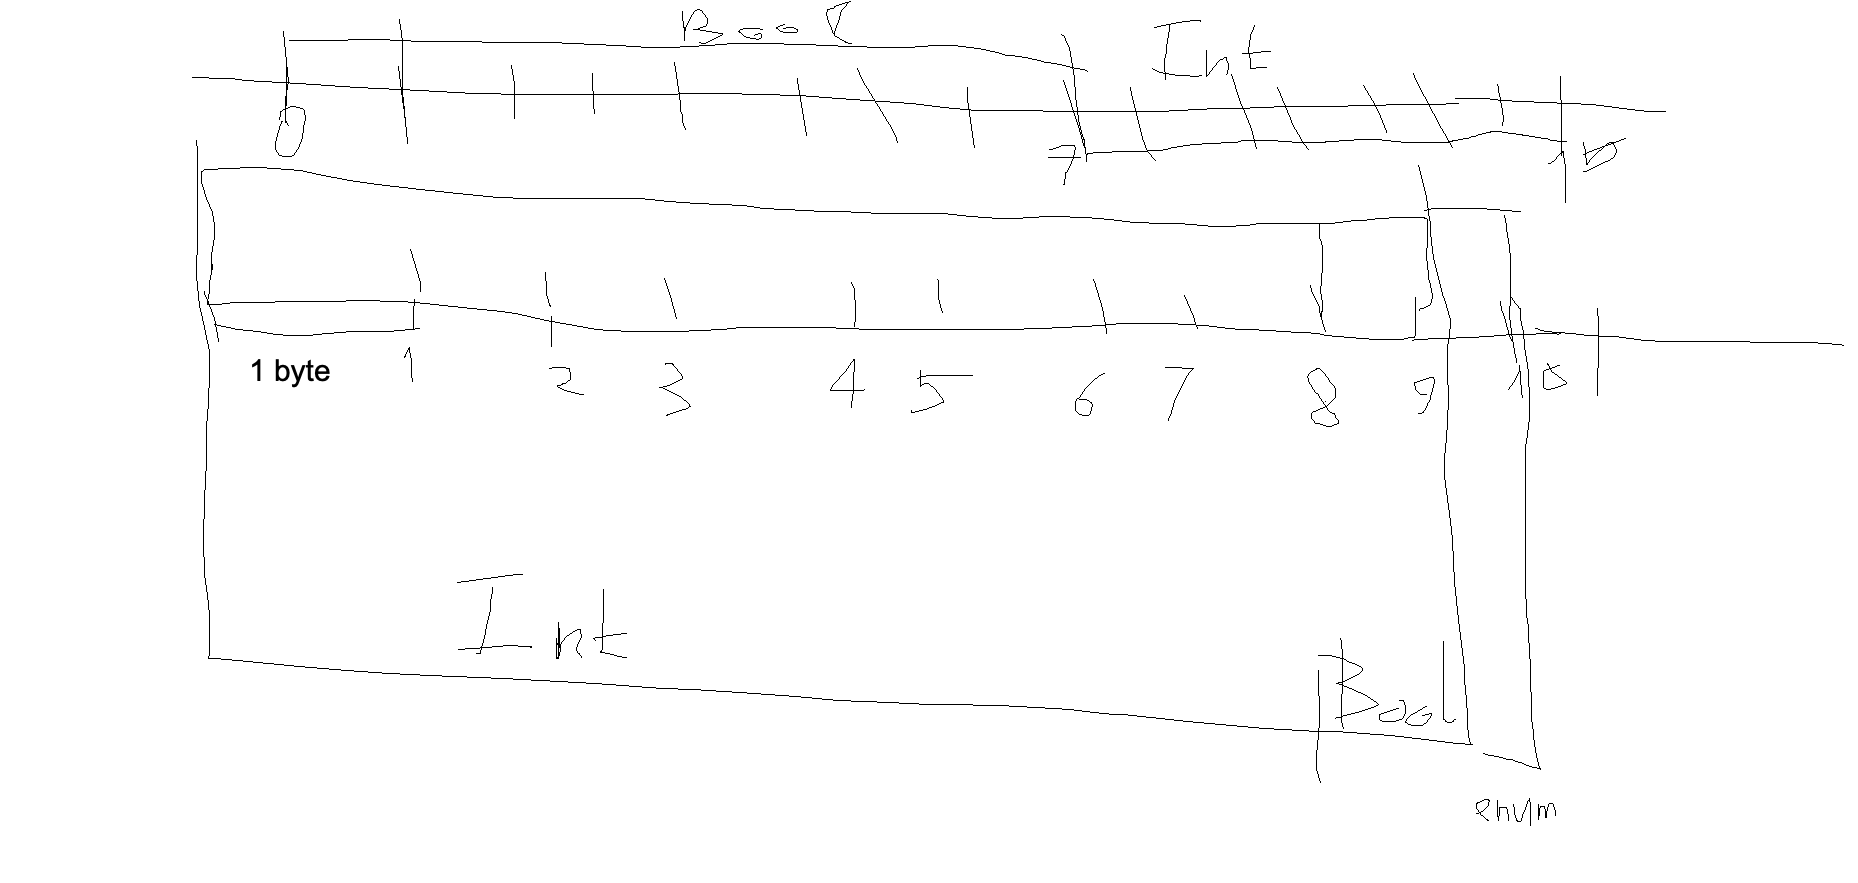 Bool Int
0 7 15
1 byte 1 2 3 4 5 6 7 8 9 10
Int Bool
enum